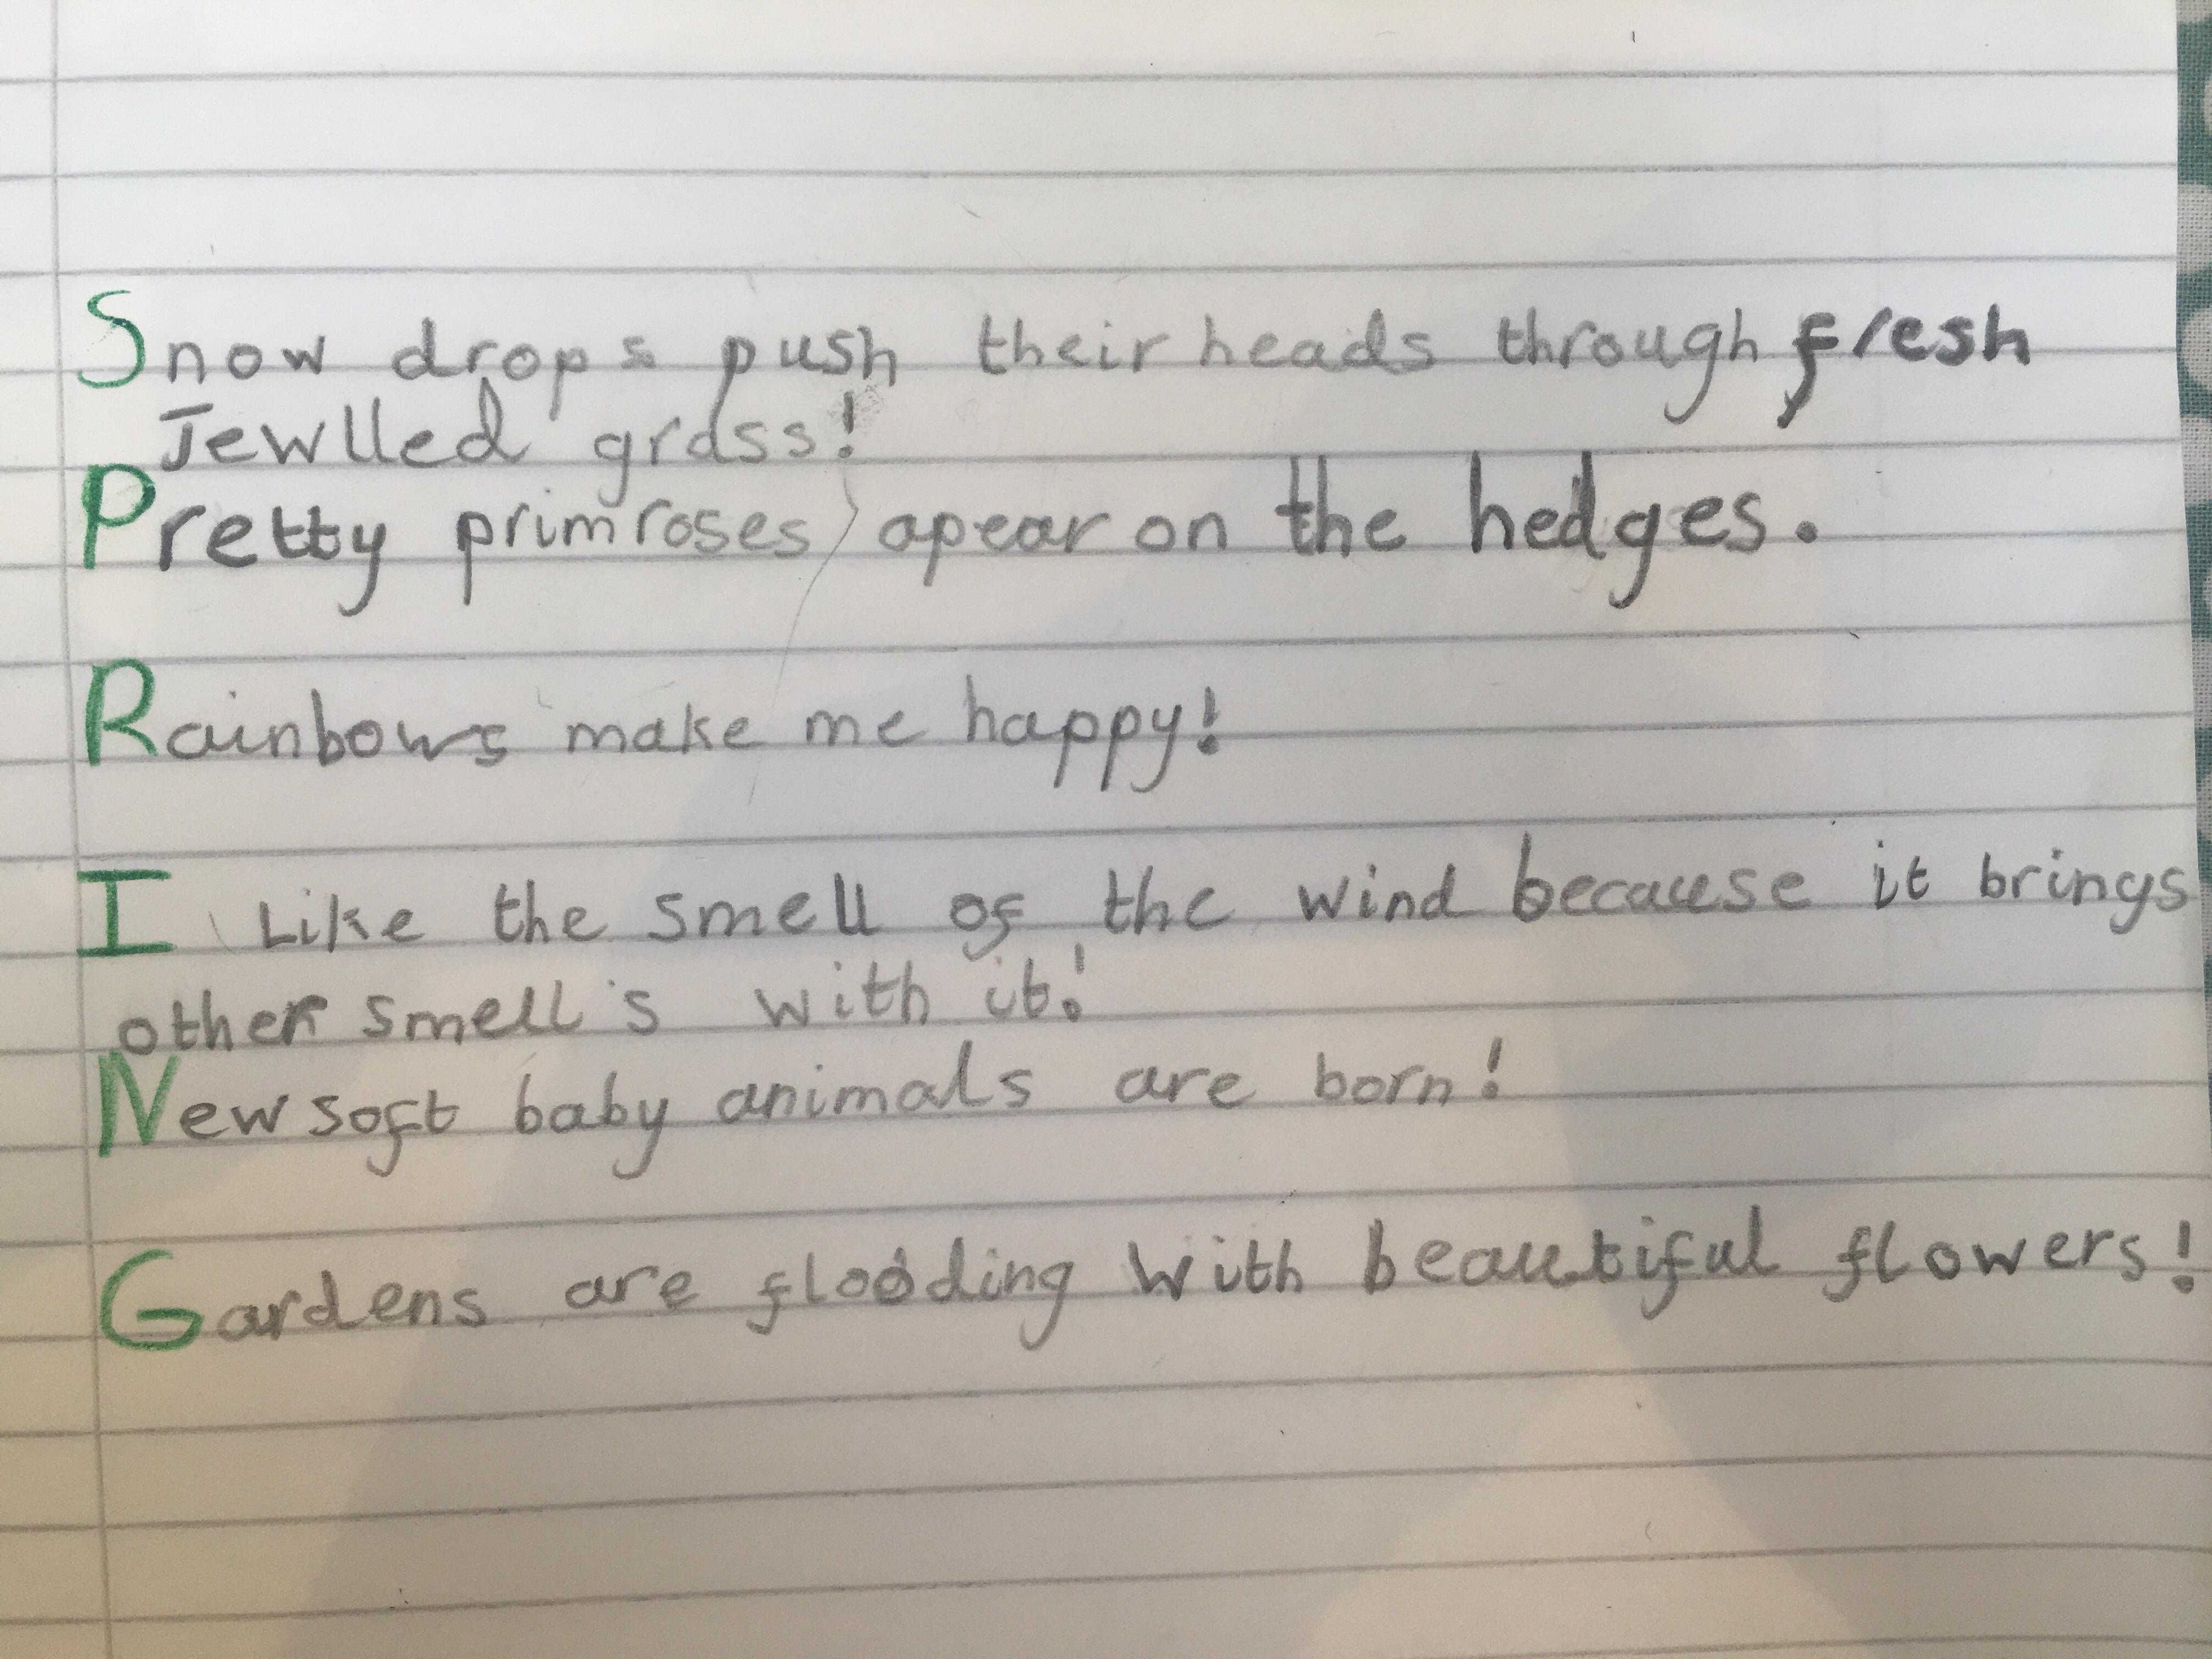 Snow drops push their heads through fresh
Jewlled grass!
Pretty primroses apear on the hedges.
Rainbows make me happy!
I Like the smell of the wind because it brings
other smell's with it!
New soft baby animals are born!
Gardens are flooding with beautiful flowers!